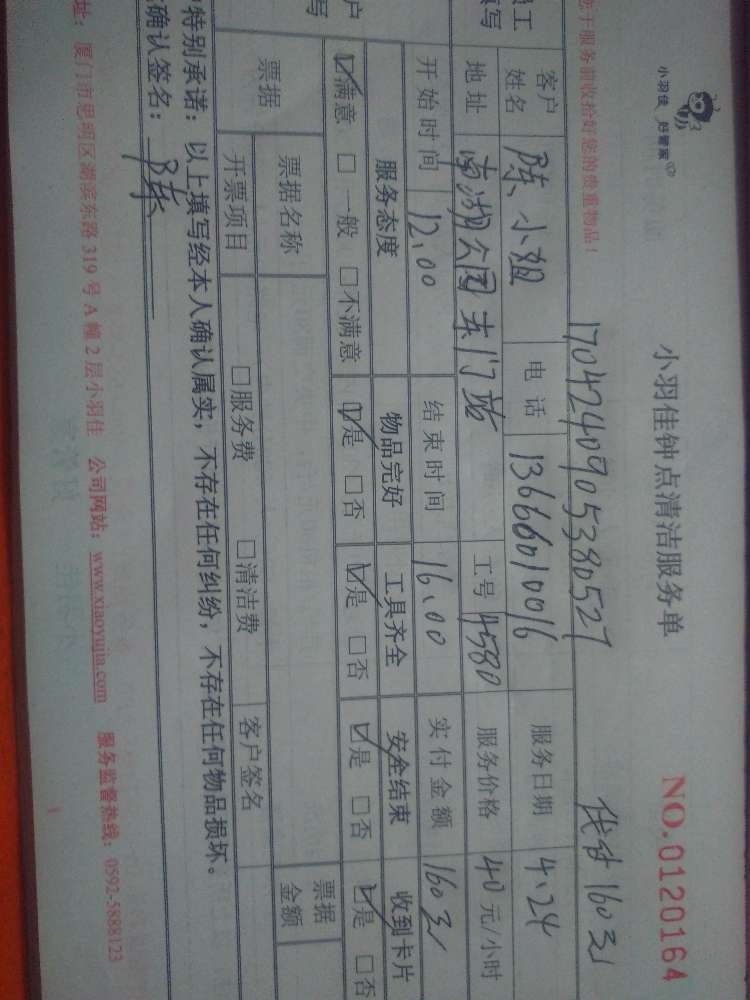 小羽佳 好管家
小羽佳钟点清洁服务单
NO.0120164
您于服务前收拾好您的贵重物品！
1704240905380527
160元
员工
填写
客户
姓名
陈小姐
电话
13666010016
服务日期
4.24
地址
南湖公园东门站
工号
4580
服务价格
40元/小时
开始时间
12.00
结束时间
16.00
实付金额
160元
户
写
服务态度
物品完好
工具齐全
安全结束
收到卡片
☑满意 □一般 □不满意
☑是 □否
☑是 □否
☑是 □否
☑是 □否
票据
票据名称
票据
金额
开票项目
□服务费 □清洁费
客户签名
特别承诺：以上填写经本人确认属实，不存在任何纠纷，不存在任何物品损坏。
确认签名：陈
址：厦门市思明区湖滨东路319号A幢2层小羽佳 公司网站：www.xiaoyujia.com 服务监督热线：0592-5888123